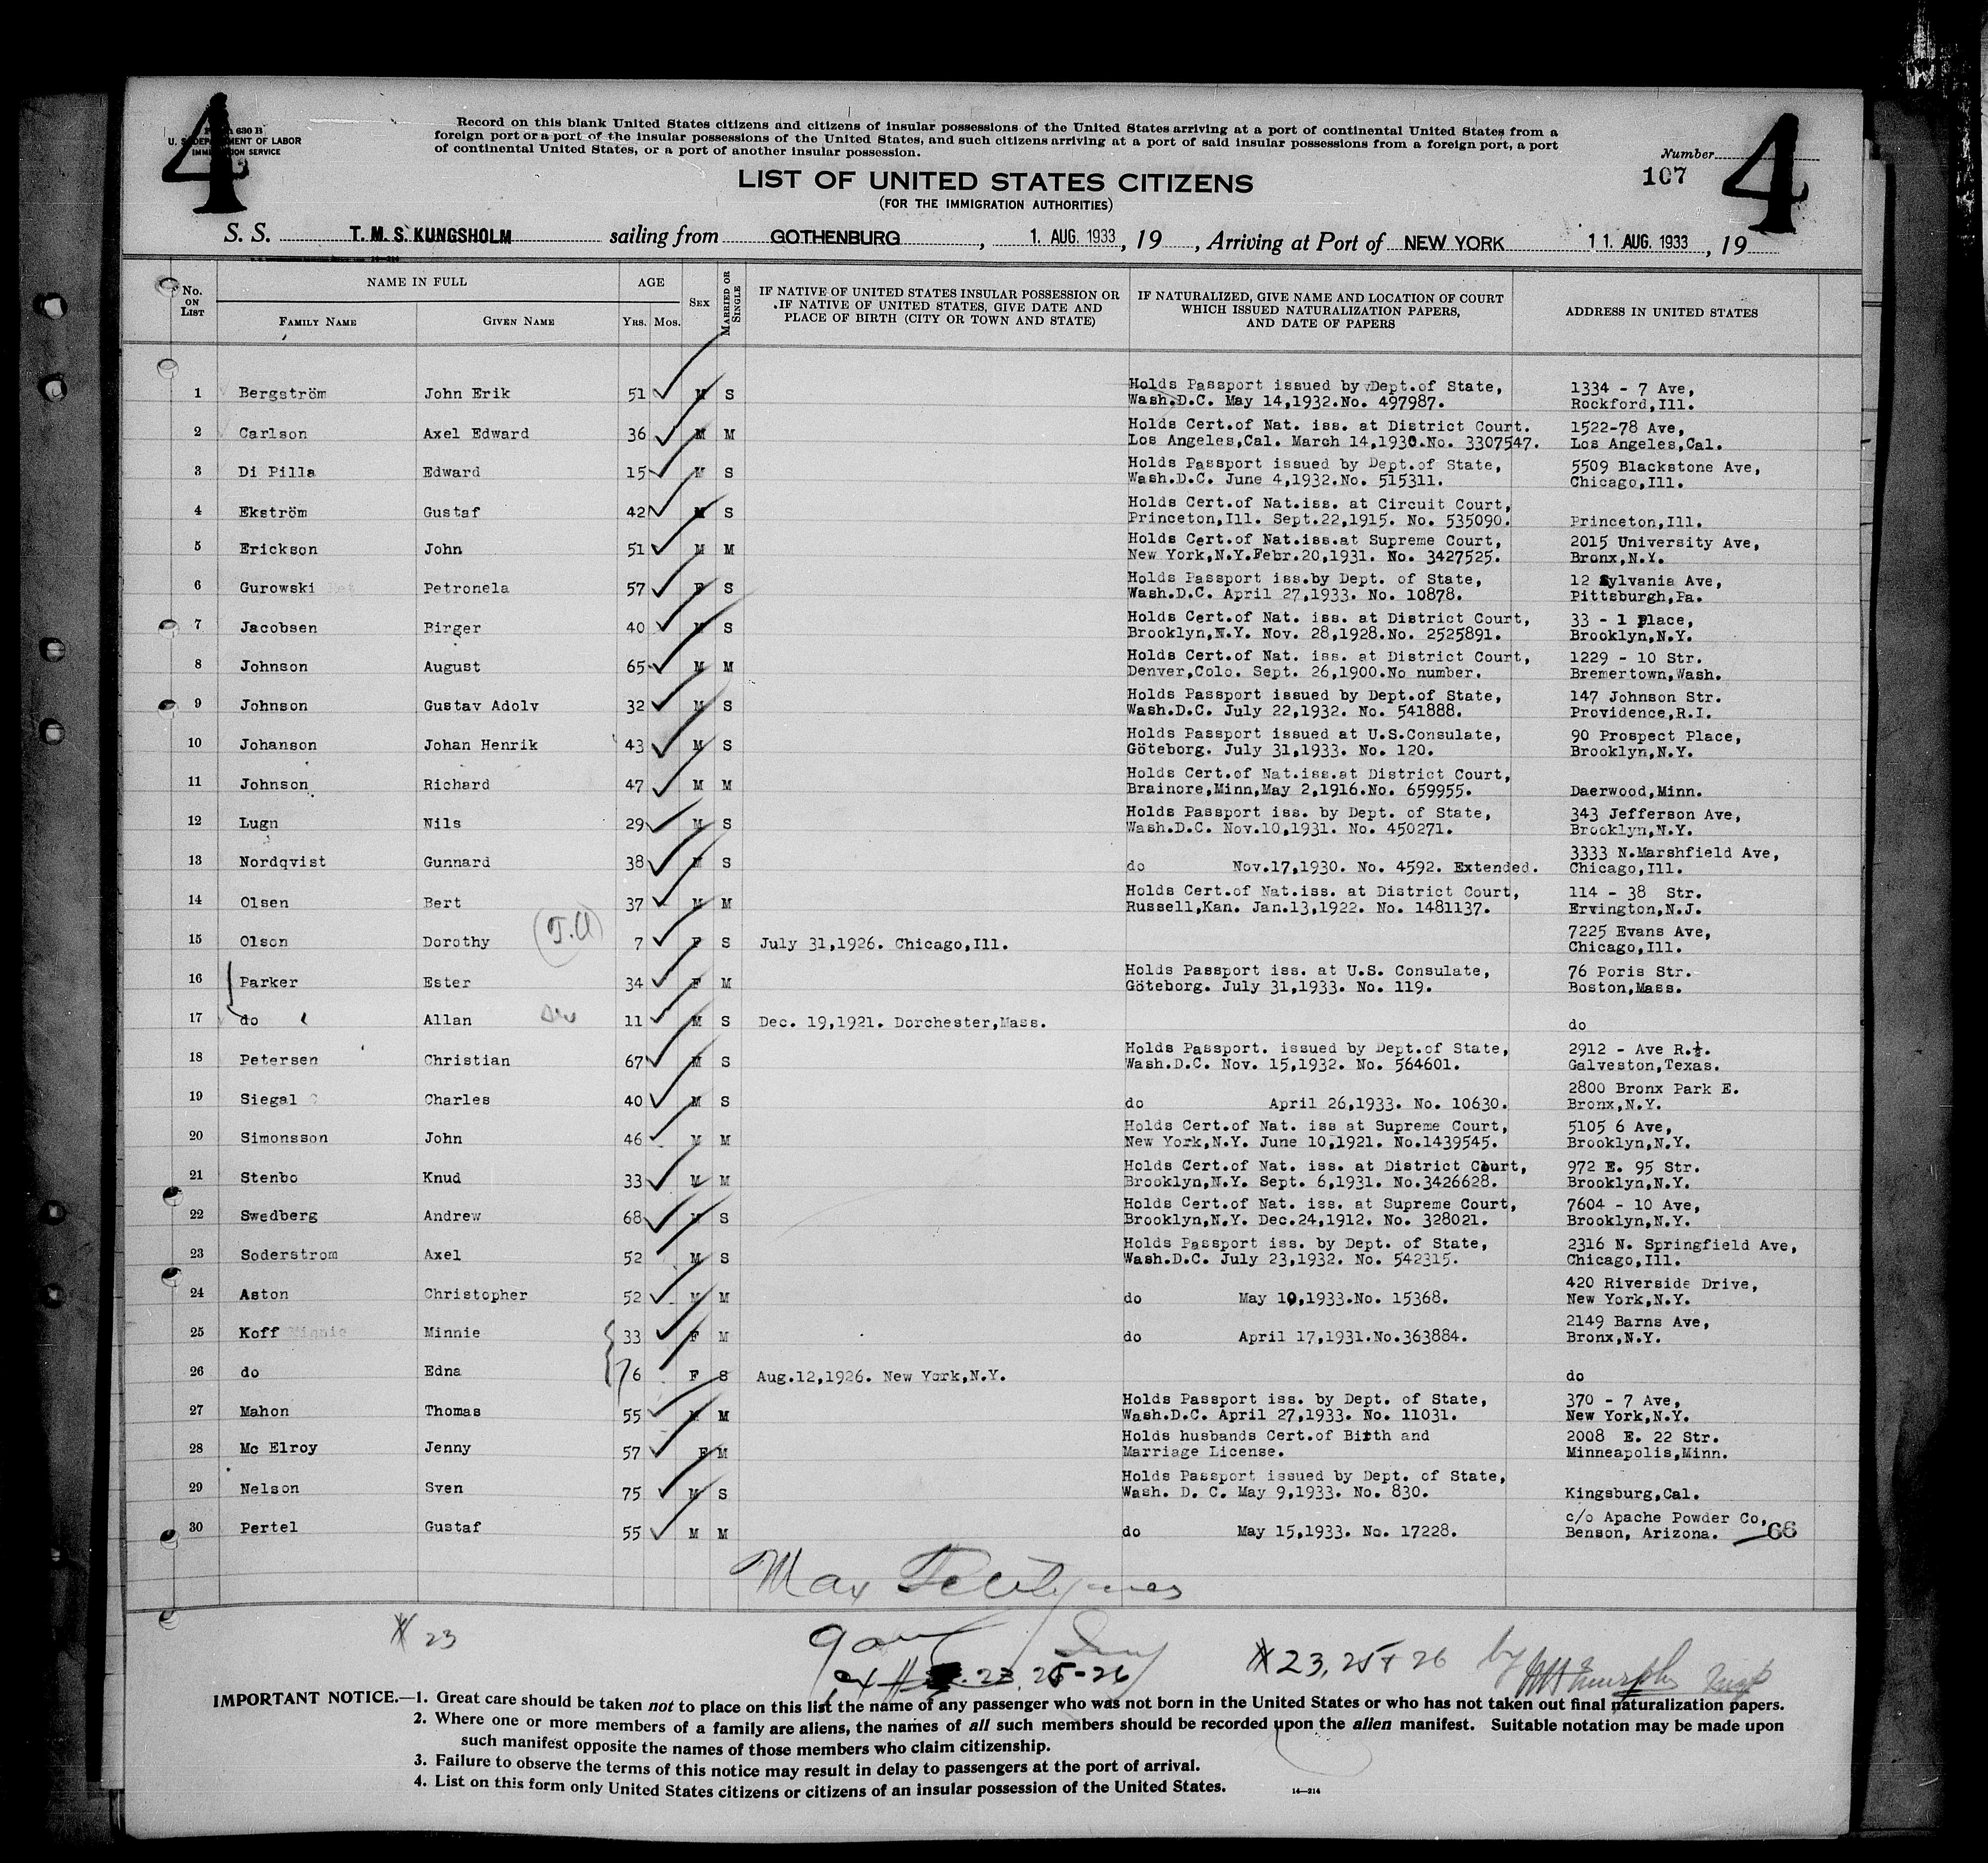 4
FORM 630 B
U. S. DEPARTMENT OF LABOR
IMMIGRATION SERVICE
Record on this blank United States citizens and citizens of insular possessions of the United States arriving at a port of continental United States from a
foreign port or a port of the insular possessions of the United States, and such citizens arriving at a port of said insular possessions from a foreign port, a port
of continental United States, or a port of another insular possession.
Number
107
4
LIST OF UNITED STATES CITIZENS
(FOR THE IMMIGRATION AUTHORITIES)
S. S. T. M. S. KUNGSHOLM sailing from GOTHENBURG, 1. AUG. 1933, 19 , Arriving at Port of NEW YORK 11. AUG. 1933, 19
No. ON LIST NAME IN FULL FAMILY NAME GIVEN NAME AGE YRS. MOS. SEX MARRIED OR SINGLE IF NATIVE OF UNITED STATES INSULAR POSSESSION OR IF NATIVE OF UNITED STATES, GIVE DATE AND PLACE OF BIRTH (CITY OR TOWN AND STATE) IF NATURALIZED, GIVE NAME AND LOCATION OF COURT WHICH ISSUED NATURALIZATION PAPERS, AND DATE OF PAPERS ADDRESS IN UNITED STATES
1 Bergström John Erik 51 M S Holds Passport issued by Dept.of State, Wash.D.C. May 14,1932.No. 497987. 1334 - 7 Ave, Rockford,Ill.
2 Carlson Axel Edward 36 M M Holds Cert.of Nat. iss. at District Court. Los Angeles,Cal. March 14,1930.No. 3307547. 1522-78 Ave, Los Angeles,Cal.
3 Di Pilla Edward 15 M S Holds Passport issued by Dept.of State, Wash.D.C. June 4,1932.No. 515311. 5509 Blackstone Ave, Chicago,Ill.
4 Ekström Gustaf 42 M S Holds Cert.of Nat.iss. at Circuit Court, Princeton,Ill. Sept.22,1915. No. 535090. Princeton,Ill.
5 Erickson John 51 M M Holds Cert.of Nat.iss.at Supreme Court, New York,N.Y.Febr.20,1931. No. 3427525. 2015 University Ave, Bronx,N.Y.
6 Gurowski Petronela 57 F S Holds Passport iss.by Dept. of State, Wash.D.C. April 27,1933. No. 10878. 12 Sylvania Ave, Pittsburgh,Pa.
7 Jacobsen Birger 40 M S Holds Cert.of Nat. iss. at District Court, Brooklyn,N.Y. Nov. 28,1928.No. 2525891. 33 - 1 place, Brooklyn,N.Y.
8 Johnson August 65 M M Holds Cert.of Nat. iss. at District Court, Denver,Colo. Sept. 26,1900.No number. 1229 - 10 Str. Bremertown,Wash.
9 Johnson Gustav Adolv 32 M S Holds Passport issued by Dept.of State, Wash.D.C. July 22,1932. No. 541888. 147 Johnson Str. Providence,R.I.
10 Johanson Johan Henrik 43 M S Holds Passport issued at U.S.Consulate, Göteborg. July 31,1933. No. 120. 90 Prospect Place, Brooklyn,N.Y.
11 Johnson Richard 47 M M Holds Cert.of Nat.iss.at District Court, Brainore,Minn,May 2,1916.No. 659955. Daerwood,Minn.
12 Lugn Nils 29 M S Holds Passport iss. by Dept. of State, Wash.D.C. Nov.10,1931. No. 450271. 343 Jefferson Ave, Brooklyn,N.Y.
13 Nordqvist Gunnard 38 M S do Nov.17,1930. No. 4592. Extended. 3333 N.Marshfield Ave, Chicago,Ill.
14 Olsen Bert 37 M M Holds Cert.of Nat.iss. at District Court, Russell,Kan. Jan.13,1922. No. 1481137. 114 - 38 Str. Ervington,N.J.
15 Olson Dorothy 7 F S July 31,1926. Chicago,Ill. 7225 Evans Ave, Chicago,Ill.
16 Parker Ester 34 F M Holds Passport iss. at U.S. Consulate, Göteborg. July 31,1933. No. 119. 76 Poris Str. Boston,Mass.
17 do Allan 11 M S Dec. 19,1921. Dorchester,Mass. do
18 Petersen Christian 67 M S Holds Passport. issued by Dept.of State, Wash.D.C. Nov. 15,1932. No. 564601. 2912 - Ave R.½. Galveston,Texas.
19 Siegal Charles 40 M S do April 26,1933. No. 10630. 2800 Bronx Park E. Bronx,N.Y.
20 Simonsson John 46 M M Holds Cert.of Nat. iss at Supreme Court, New York,N.Y. June 10,1921. No.1439545. 5105 6 Ave, Brooklyn,N.Y.
21 Stenbo Knud 33 M M Holds Cert.of Nat. iss. at District Court, Brooklyn,N.Y. Sept. 6,1931. No.3426628. 972 E. 95 Str. Brooklyn,N.Y.
22 Swedberg Andrew 68 M S Holds Cert.of Nat. iss. at Supreme Court, Brooklyn,N.Y. Dec.24,1912. No. 328021. 7604 - 10 Ave, Brooklyn,N.Y.
23 Soderstrom Axel 52 M S Holds Passport iss. by Dept. of State, Wash.D.C. July 23,1932. No. 542315. 2316 N. Springfield Ave, Chicago,Ill.
24 Aston Christopher 52 M M do May 10,1933.No. 15368. 420 Riverside Drive, New York,N.Y.
25 Koff Minnie 33 F M do April 17,1931.No.363884. 2149 Barns Ave, Bronx,N.Y.
26 do Edna 6 F S Aug.12,1926. New York,N.Y. do
27 Mahon Thomas 55 M M Holds Passport iss. by Dept. of State, Wash.D.C. April 27,1933. No. 11031. 370 - 7 Ave, New York,N.Y.
28 Mc Elroy Jenny 57 F M Holds husbands Cert.of Birth and Marriage License. 2008 E. 22 Str. Minneapolis,Minn.
29 Nelson Sven 75 M S Holds Passport issued by Dept. of State, Wash. D. C. May 9,1933. No. 830. Kingsburg,Cal.
30 Pertel Gustaf 55 M M do May 15,1933. No. 17228. c/o Apache Powder Co, Benson, Arizona. 66
Max
23
23, 25-26
23, 25 + 26 by
IMPORTANT NOTICE.—1. Great care should be taken not to place on this list the name of any passenger who was not born in the United States or who has not taken out final naturalization papers.
2. Where one or more members of a family are aliens, the names of all such members should be recorded upon the alien manifest. Suitable notation may be made upon
such manifest opposite the names of those members who claim citizenship.
3. Failure to observe the terms of this notice may result in delay to passengers at the port of arrival.
4. List on this form only United States citizens or citizens of an insular possession of the United States.
14—214